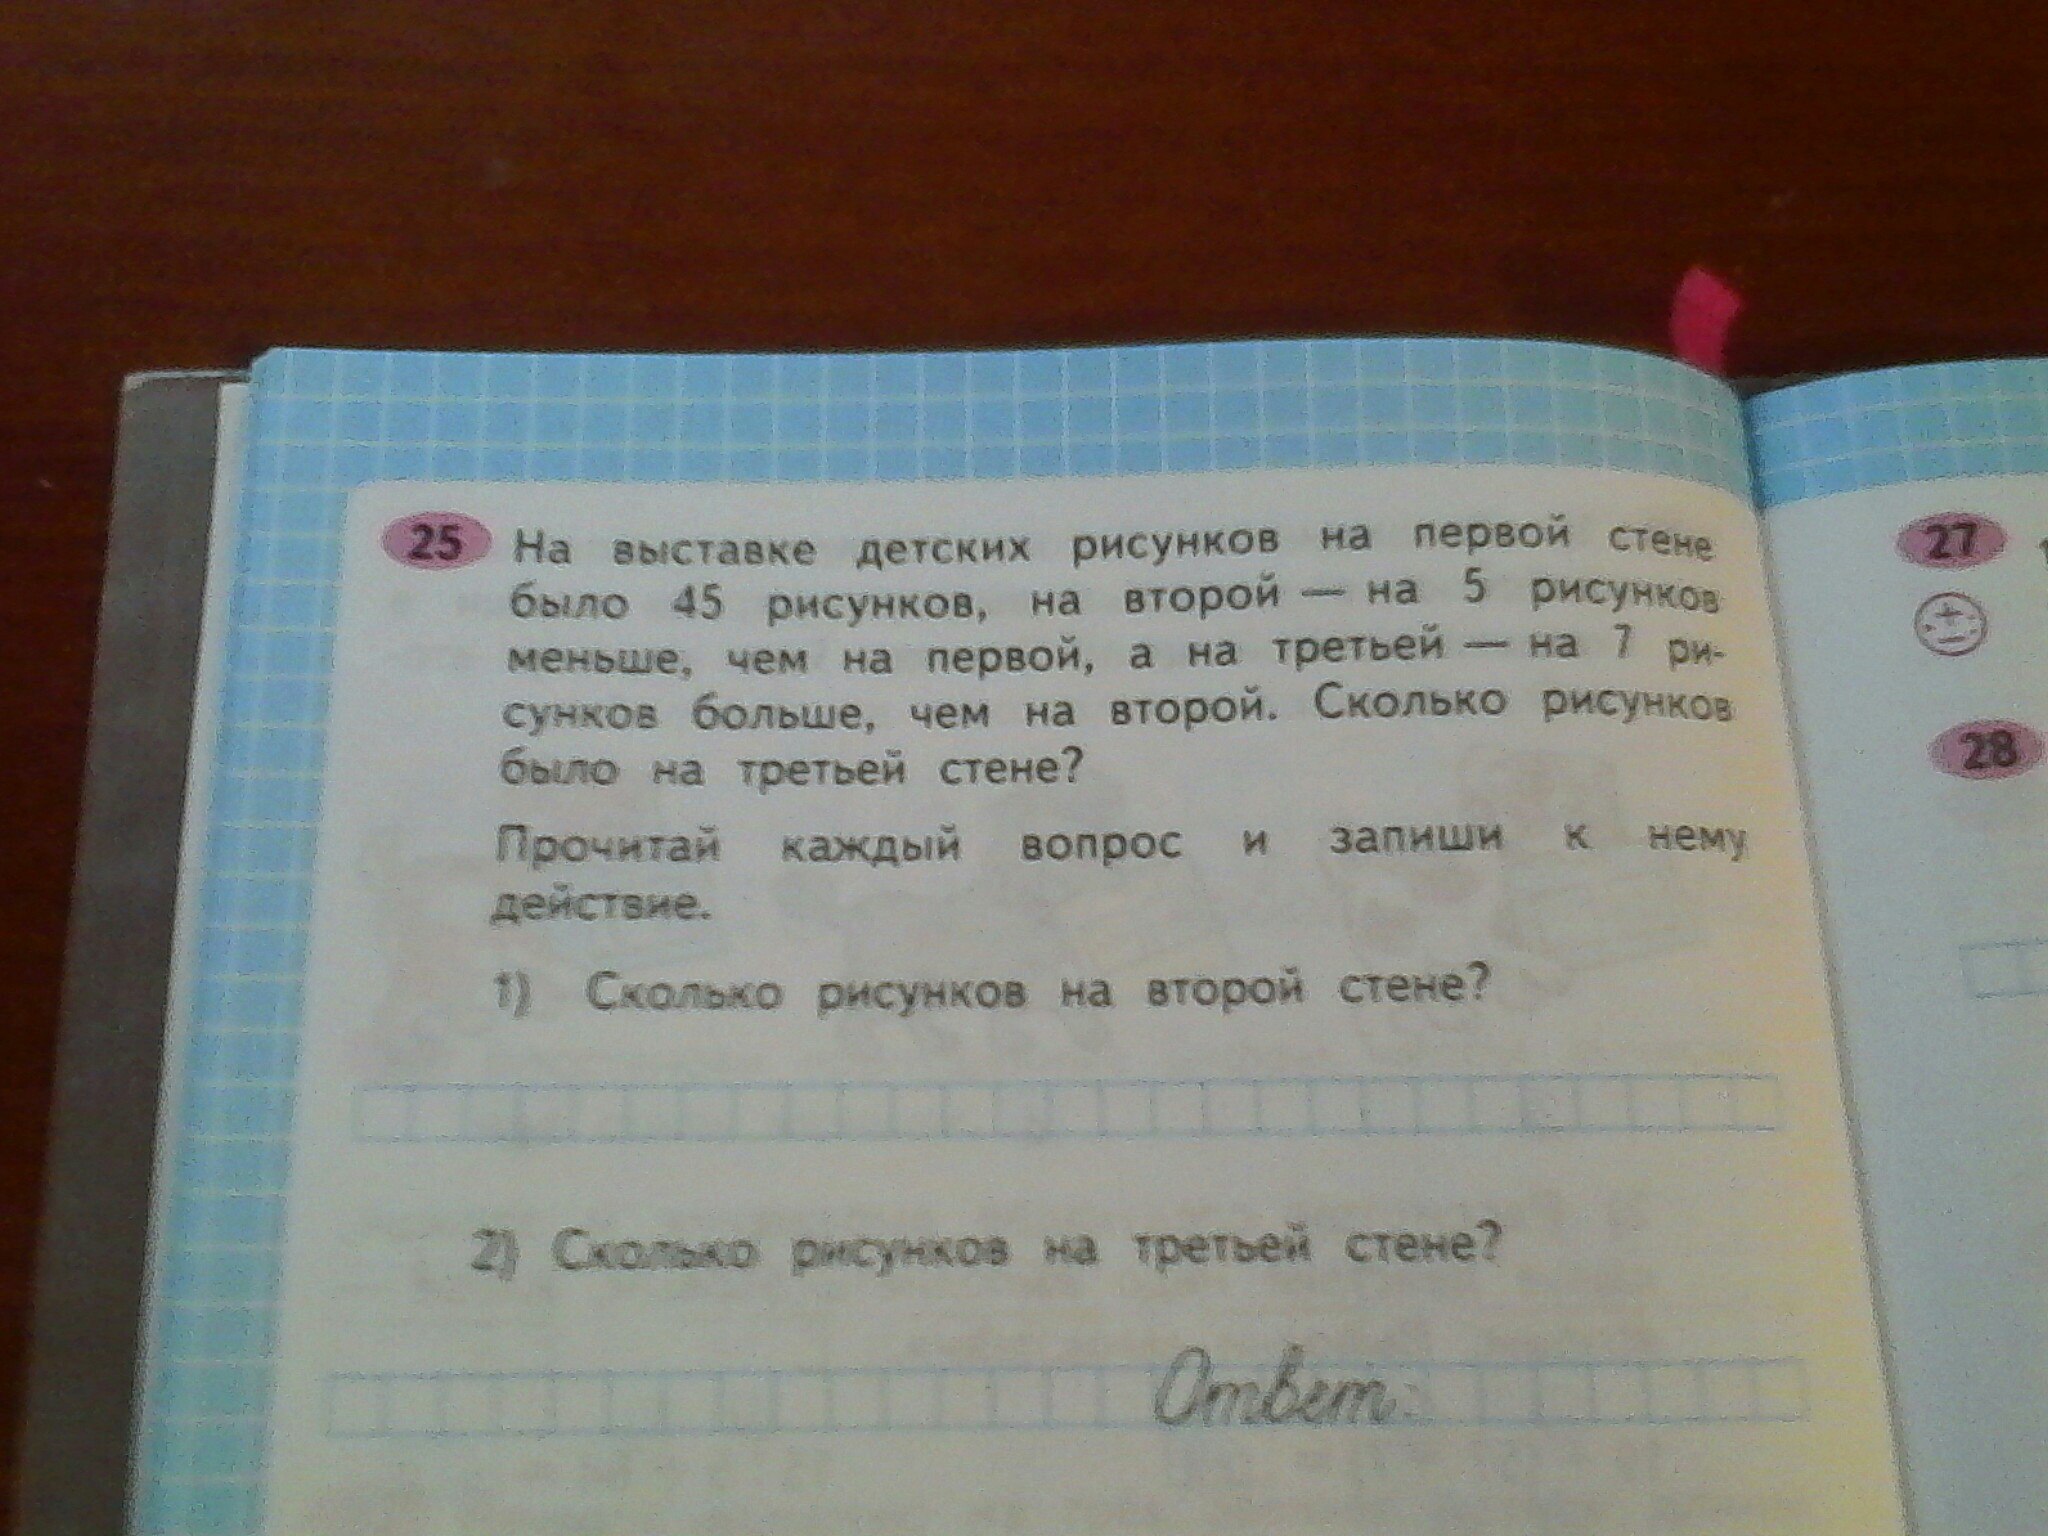 25 На выставке детских рисунков на первой стене
было 45 рисунков, на второй — на 5 рисунков
меньше, чем на первой, а на третьей — на 7 ри-
сунков больше, чем на второй. Сколько рисунков
было на третьей стене?
Прочитай каждый вопрос и запиши к нему
действие.
1) Сколько рисунков на второй стене?
2) Сколько рисунков на третьей стене?
Ответ:
27
28